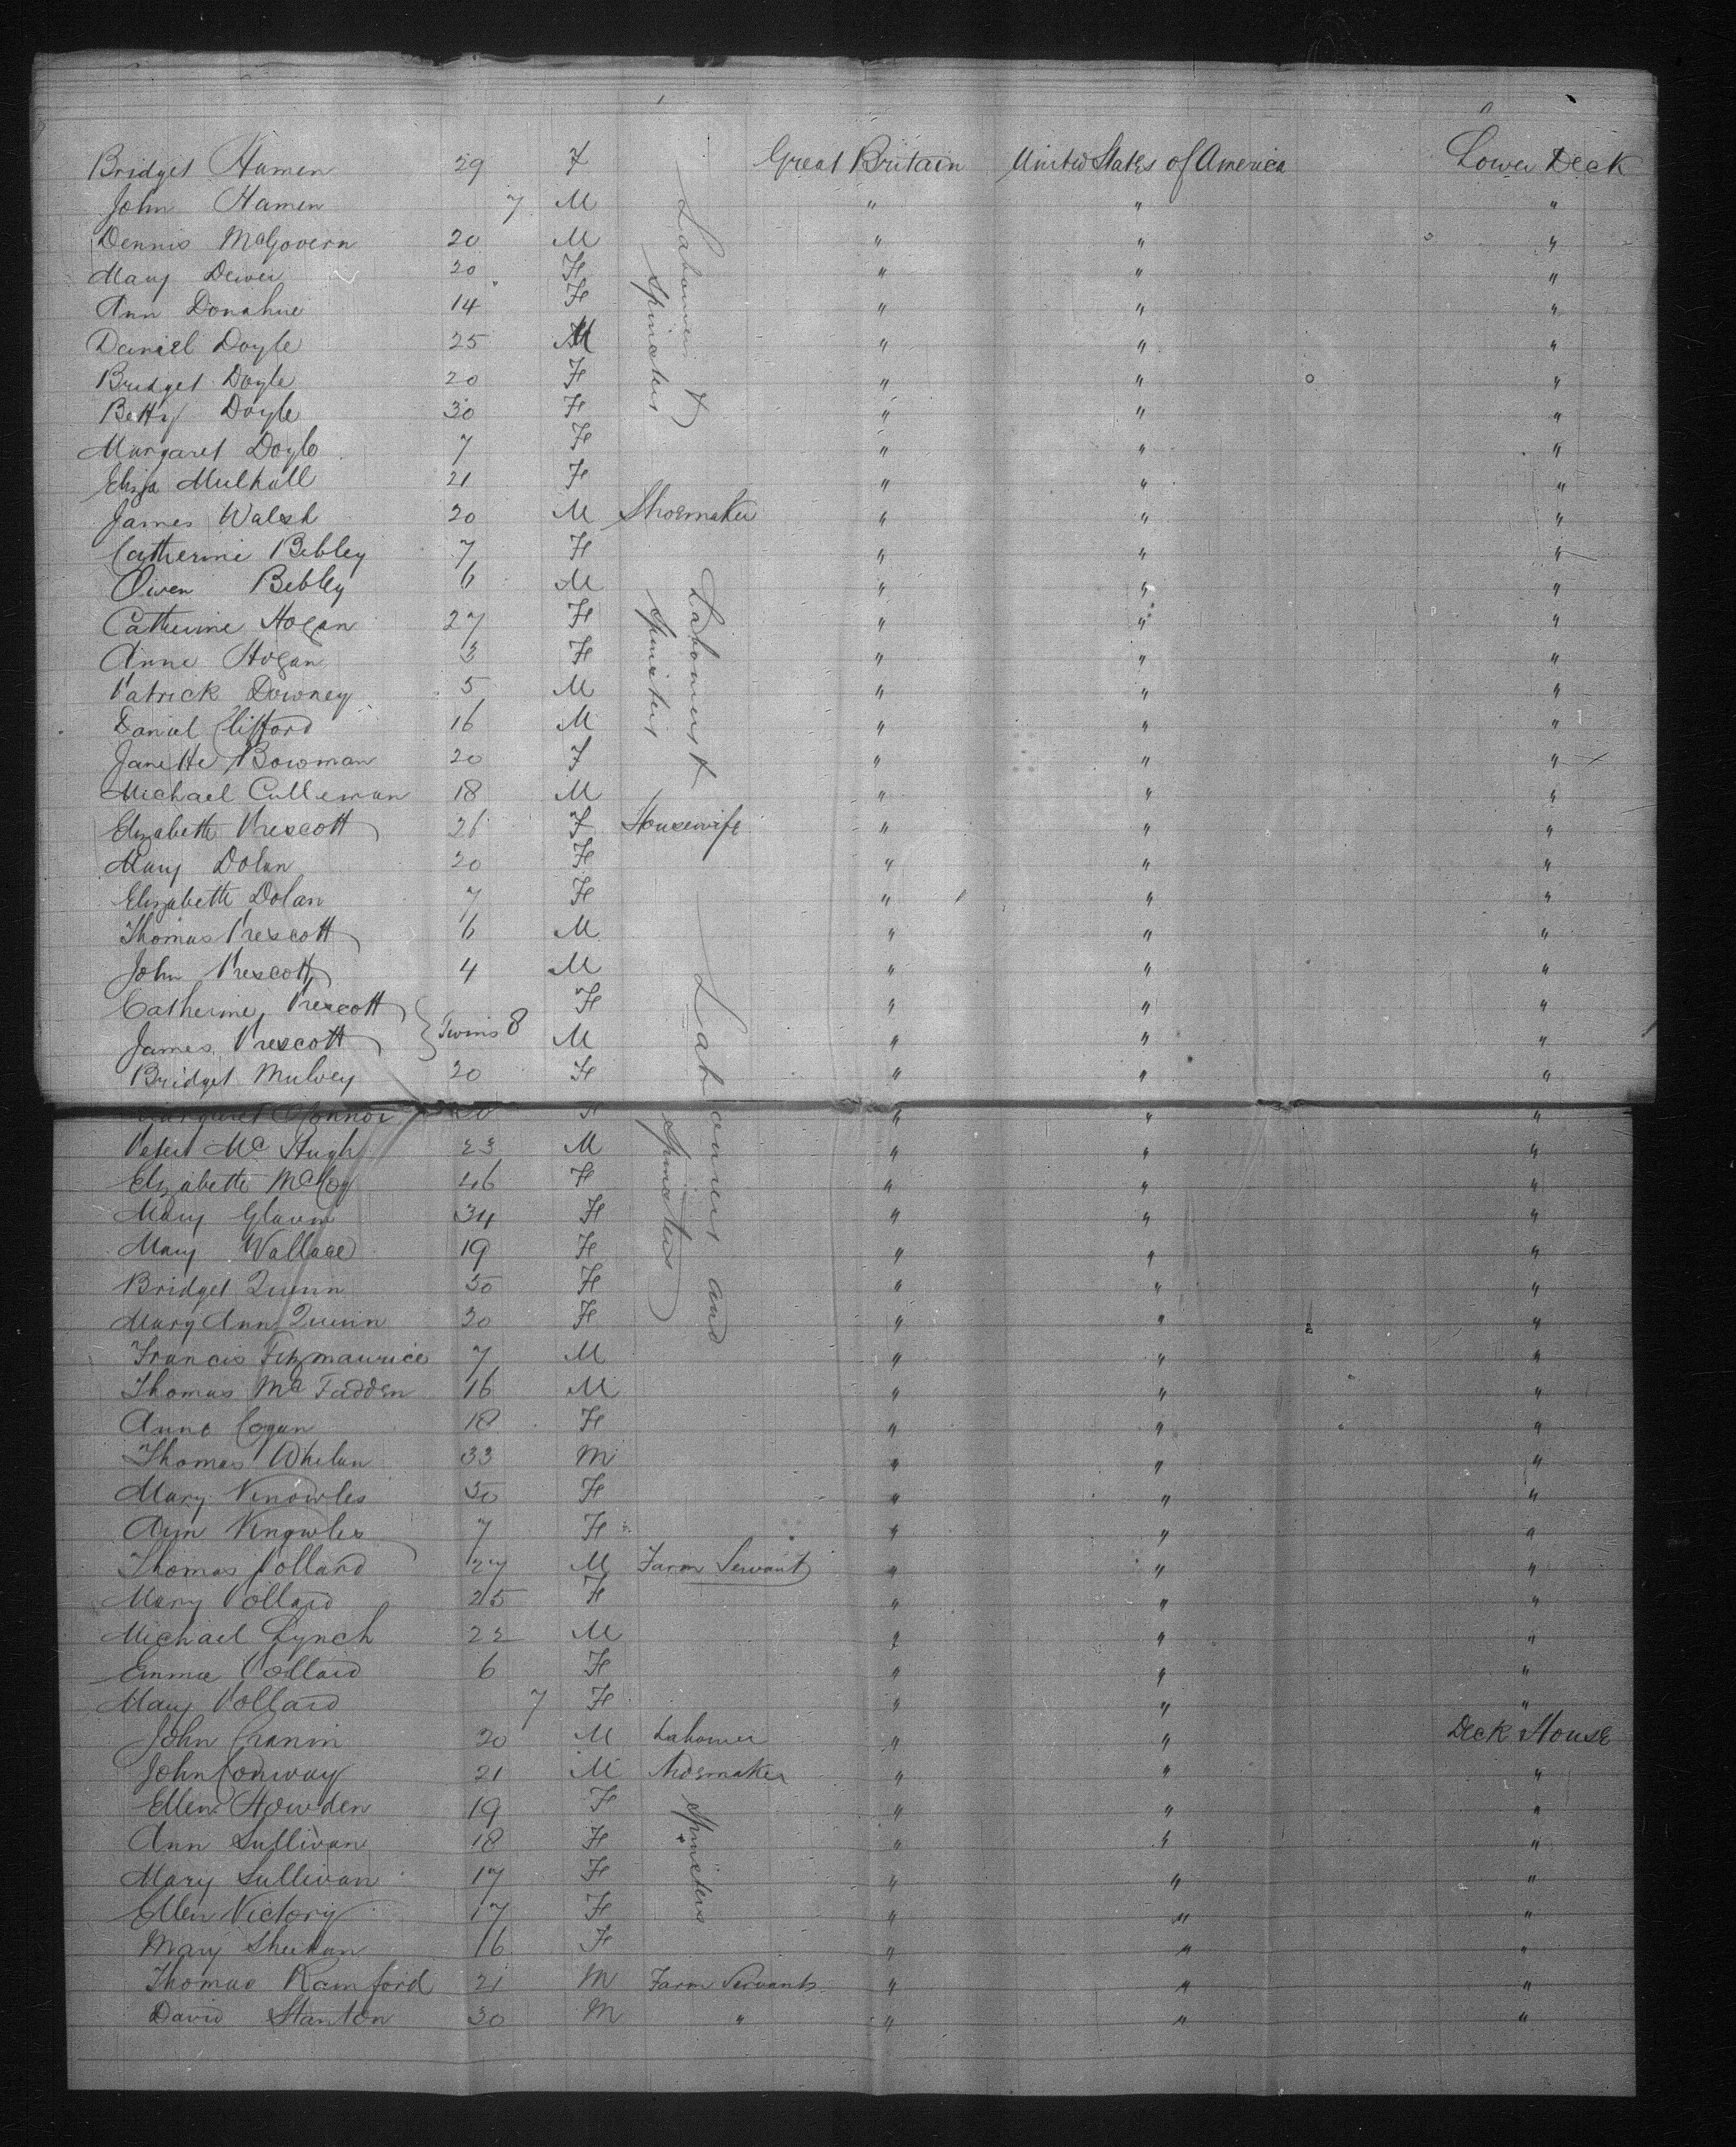 Bridget Hamen 29 F Great Britain United States of America Lower Deck
John Hamen 7 M " " "
Dennis McGovern 20 M " " "
Mary 20 F " " "
Ann Donahue 14 F " " "
Daniel Doyle 25 M " " "
Bridget Doyle 20 F " " "
Betty Doyle 30 F " " "
Margaret Doyle 7 F " " "
Eliza Mulhall 21 F " " "
Labourers & Spinsters
James Walsh 20 M Shoemaker " " "
Catherine Bebley 7 F " " "
Owen Bebley 6 M " " "
Catherine Hogan 27 F " " "
Anne Hogan 3 F " " "
Patrick Downey 5 M " " "
Daniel Clifford 16 M " " "
Janette Bowman 20 F " " "
Michael 18 M " " "
Labourers & Spinsters
Elizabeth Prescott 26 F Housewife " " "
Mary Dolan 20 F " " "
Elizabeth Dolan 7 F " " "
Thomas Prescott 6 M " " "
John Prescott 4 M " " "
Catherine Prescott F " " "
James Prescott } Twins 8 M " " "
Bridget Mulvey 20 F " " "
Margaret Connor 20 F " " "
Peter McHugh 23 M " " "
Elizabeth McCoy 46 F " " "
Mary 34 F " " "
Mary Wallace 19 F " " "
Bridget Quinn 50 F " " "
Mary Ann Quinn 20 F " " "
Labourers and Spinsters
Francis Fitzmaurice 7 M " " "
Thomas McFadden 16 M " " "
Anne Cogan 18 F " " "
Thomas Whelan 33 M " " "
Mary Knowles 30 F " " "
Ann Knowles 7 F " " "
Thomas Pollard 27 M Farm Servant " " "
Mary Pollard 25 F " " "
Michael Lynch 22 M " " "
Emma Pollard 6 F " " "
Mary Pollard 7 F " " "
John Cranin 20 M Labourer " " Deck House
John Conway 21 M Shoemaker " " "
Ellen Howden 19 F " " "
Ann Sullivan 18 F " " "
Mary Sullivan 17 F " " "
Ellen Victory 17 F " " "
Mary Sheehan 16 F " " "
Spinsters
Thomas Ramford 21 M Farm Servants " " "
David Stanton 30 M " " " "